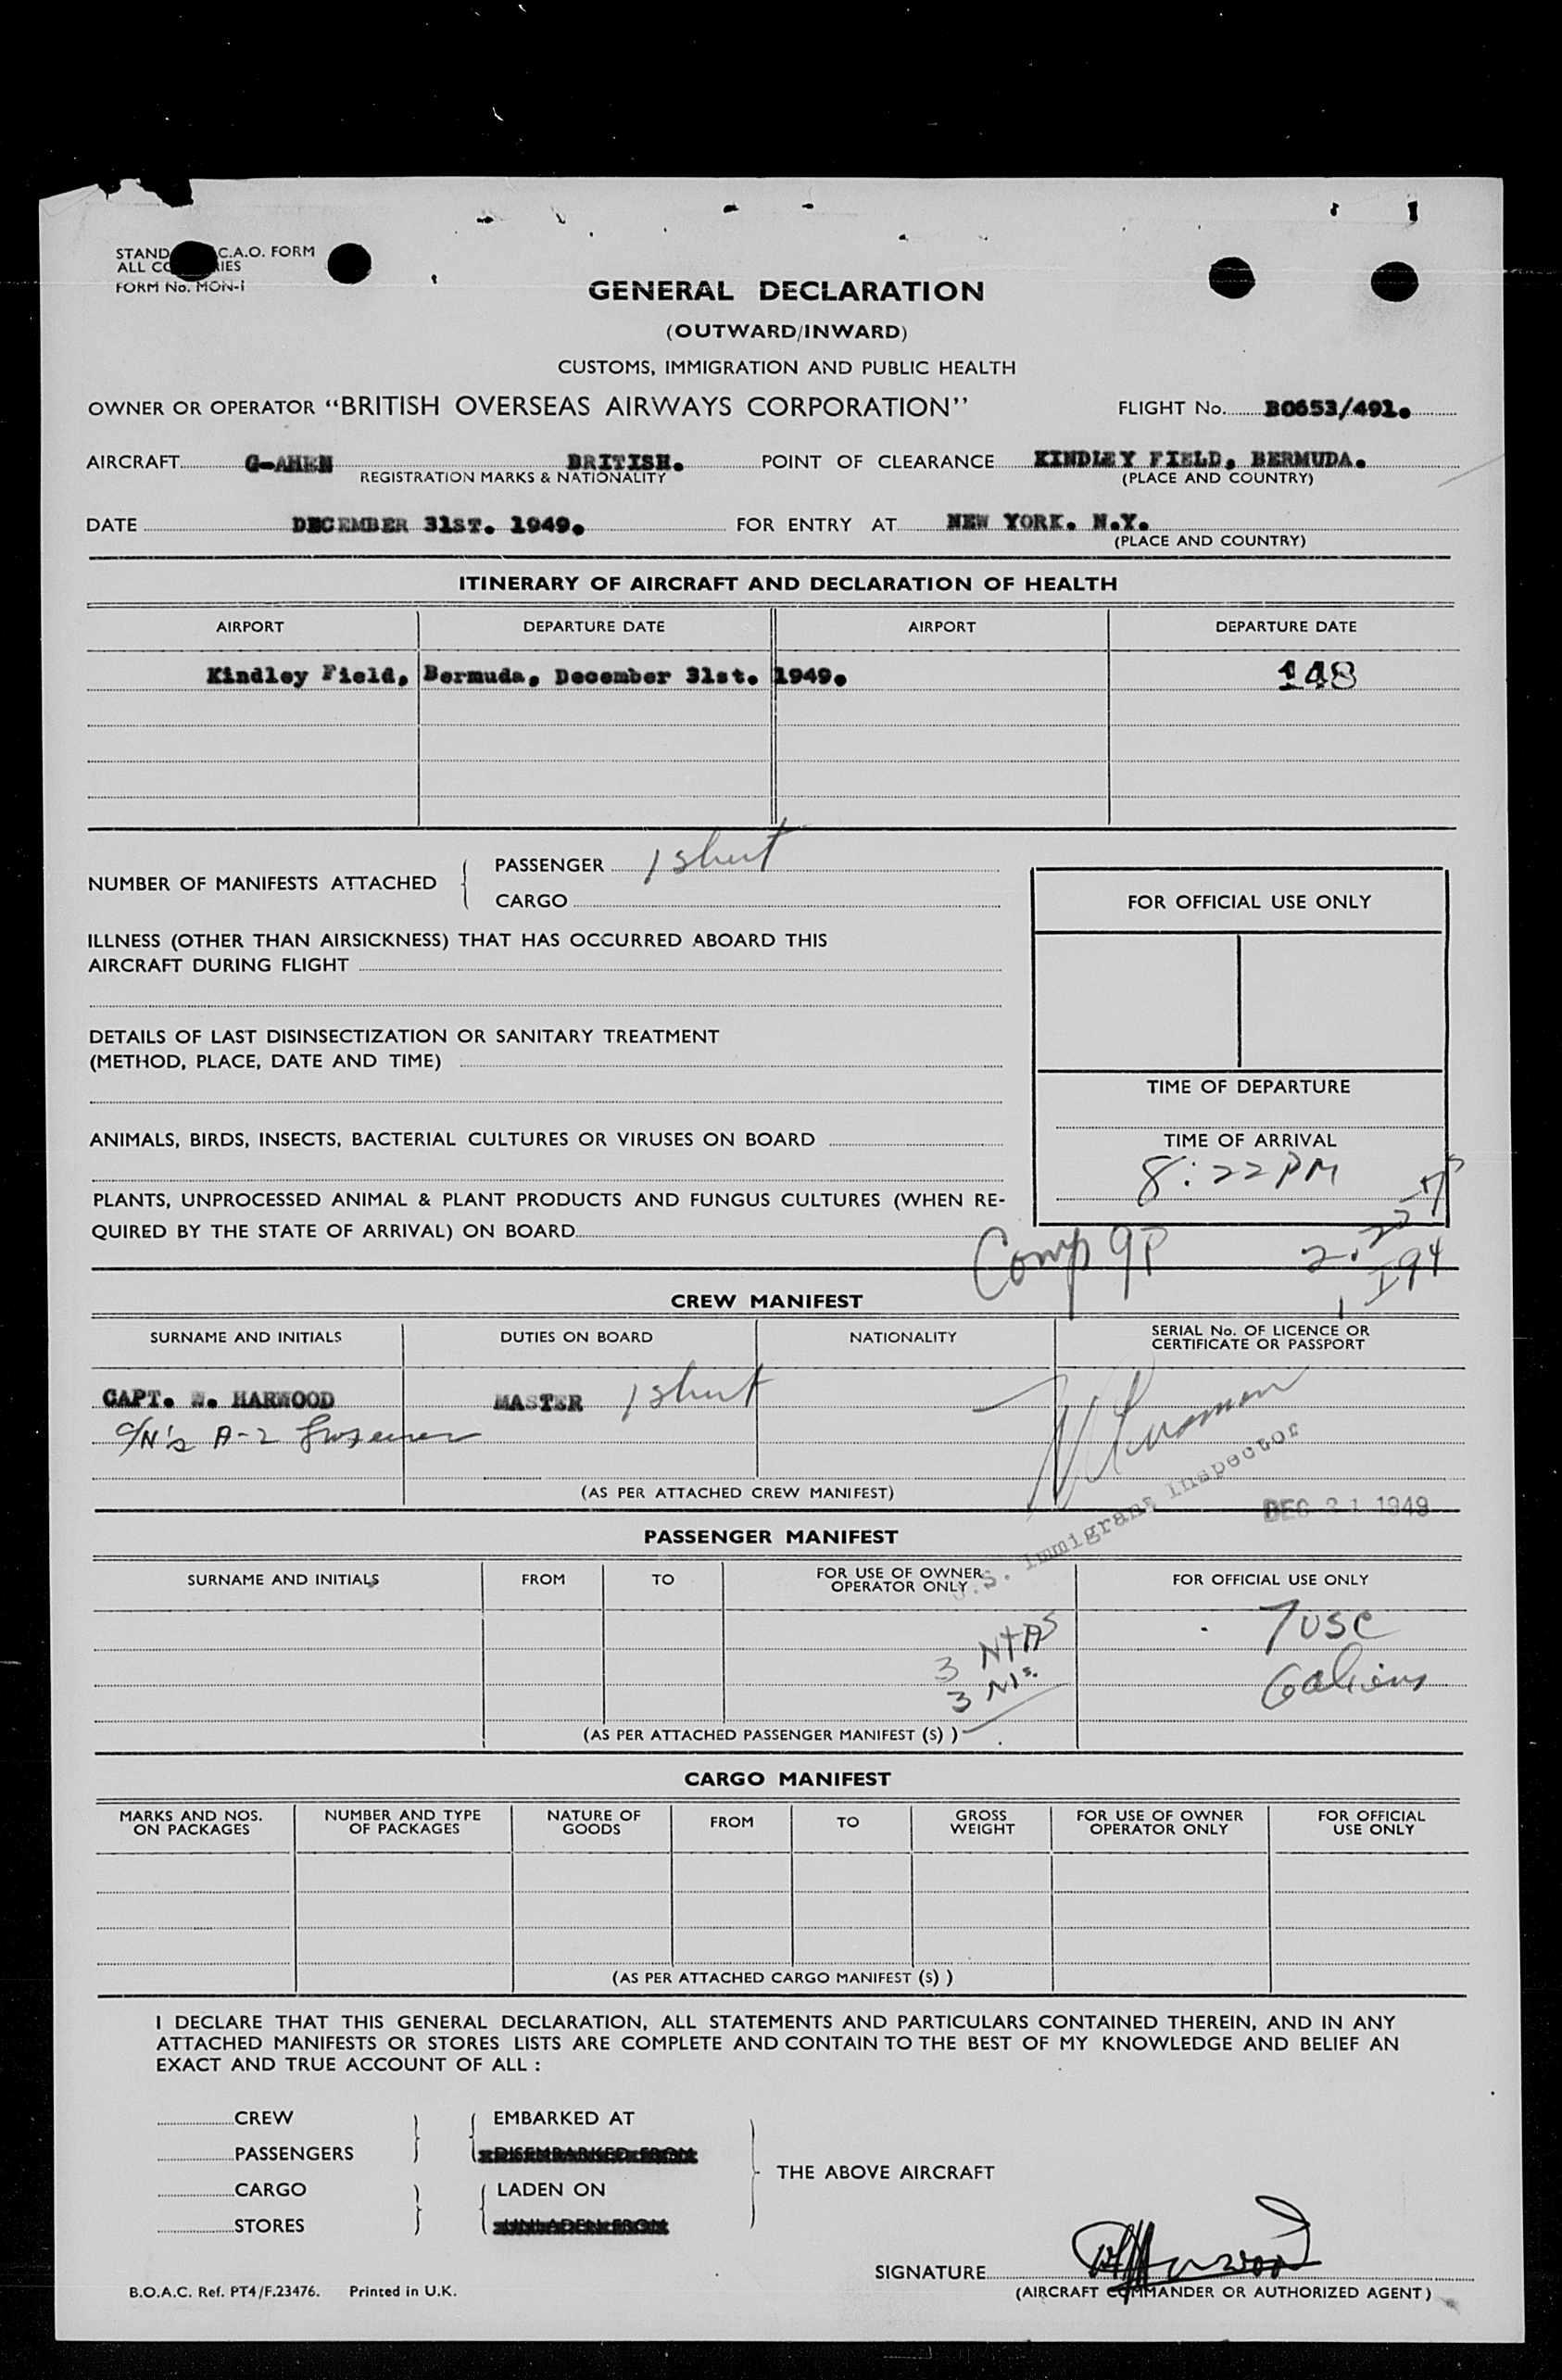 STAND C.A.O. FORM
ALL CO RIES
FORM No. MON-1
GENERAL DECLARATION
(OUTWARD/INWARD)
CUSTOMS, IMMIGRATION AND PUBLIC HEALTH
OWNER OR OPERATOR “BRITISH OVERSEAS AIRWAYS CORPORATION” FLIGHT No. BO653/491.
AIRCRAFT G-AHEN BRITISH. POINT OF CLEARANCE KINDLEY FIELD, BERMUDA.
REGISTRATION MARKS & NATIONALITY (PLACE AND COUNTRY)
DATE DECEMBER 31ST. 1949. FOR ENTRY AT NEW YORK. N.Y.
(PLACE AND COUNTRY)
ITINERARY OF AIRCRAFT AND DECLARATION OF HEALTH
AIRPORT DEPARTURE DATE AIRPORT DEPARTURE DATE
Kindley Field, Bermuda, December 31st. 1949. 148
NUMBER OF MANIFESTS ATTACHED
PASSENGER 1 sheet
CARGO
FOR OFFICIAL USE ONLY
ILLNESS (OTHER THAN AIRSICKNESS) THAT HAS OCCURRED ABOARD THIS
AIRCRAFT DURING FLIGHT
DETAILS OF LAST DISINSECTIZATION OR SANITARY TREATMENT
(METHOD, PLACE, DATE AND TIME)
TIME OF DEPARTURE
ANIMALS, BIRDS, INSECTS, BACTERIAL CULTURES OR VIRUSES ON BOARD
TIME OF ARRIVAL
8:22 PM
PLANTS, UNPROCESSED ANIMAL & PLANT PRODUCTS AND FUNGUS CULTURES (WHEN RE-
QUIRED BY THE STATE OF ARRIVAL) ON BOARD
Comp 9P
I 94
CREW MANIFEST
SURNAME AND INITIALS DUTIES ON BOARD NATIONALITY SERIAL No. OF LICENCE OR
CERTIFICATE OR PASSPORT
CAPT. W. HARWOOD MASTER 1 sheet
A-2
(AS PER ATTACHED CREW MANIFEST)
U.S. Immigrant Inspector
DEC 31 1949
PASSENGER MANIFEST
SURNAME AND INITIALS FROM TO FOR USE OF OWNER
OPERATOR ONLY FOR OFFICIAL USE ONLY
7 USC
3 NTAS
3 NIs.
6 aliens
(AS PER ATTACHED PASSENGER MANIFEST (S) )
CARGO MANIFEST
MARKS AND NOS.
ON PACKAGES NUMBER AND TYPE
OF PACKAGES NATURE OF
GOODS FROM TO GROSS
WEIGHT FOR USE OF OWNER
OPERATOR ONLY FOR OFFICIAL
USE ONLY
(AS PER ATTACHED CARGO MANIFEST (S) )
I DECLARE THAT THIS GENERAL DECLARATION, ALL STATEMENTS AND PARTICULARS CONTAINED THEREIN, AND IN ANY
ATTACHED MANIFESTS OR STORES LISTS ARE COMPLETE AND CONTAIN TO THE BEST OF MY KNOWLEDGE AND BELIEF AN
EXACT AND TRUE ACCOUNT OF ALL :
CREW EMBARKED AT
PASSENGERS DISEMBARKED FROM
THE ABOVE AIRCRAFT
CARGO LADEN ON
STORES UNLADEN FROM
SIGNATURE W Harwood
(AIRCRAFT COMMANDER OR AUTHORIZED AGENT)
B.O.A.C. Ref. PT4/F.23476. Printed in U.K.